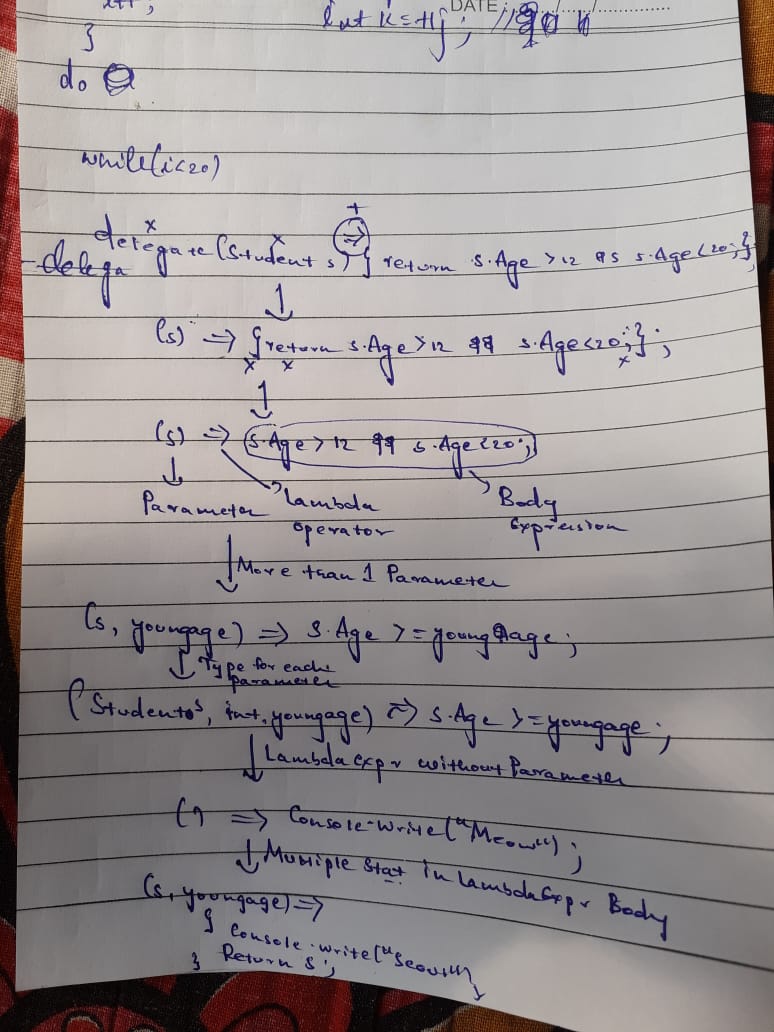 int k = ++j; //
DATE:
}
do
while(i<20)
delegate (Student s) { return s.Age > 12 && s.Age < 20; };
delega
(s) => { return s.Age > 12 && s.Age < 20; };
(s) => s.Age > 12 && s.Age < 20;
Parameter Lambda operator Body Expression
More than 1 Parameter
(s, youngage) => s.Age >= youngage;
Type for each parameter
(Student s, int youngage) => s.Age >= youngage;
Lambda expr without Parameter
() => Console.Write("Meow");
Multiple Stat in Lambda Expr Body
(s, youngage) =>
{ Console.write("Scout");
} Return s;